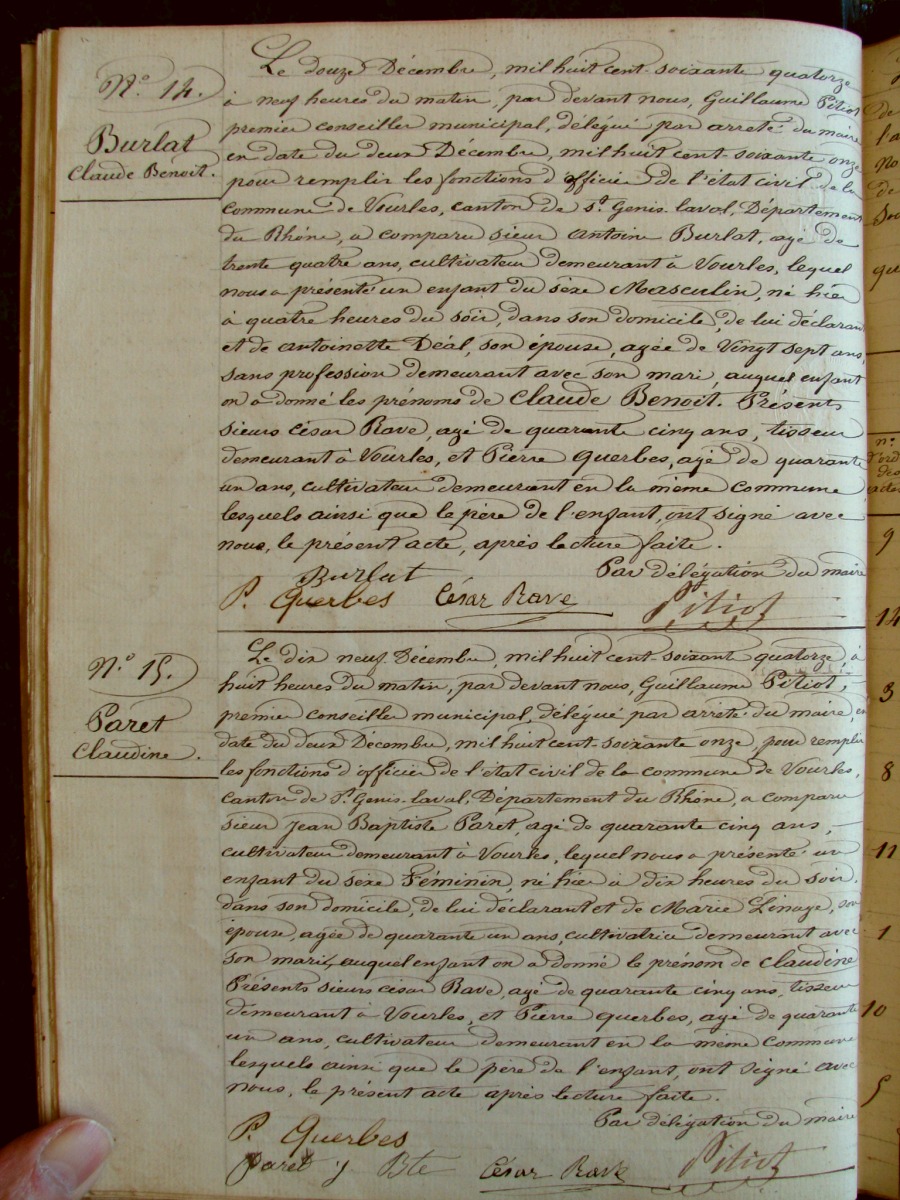 N.° 14.
Burlat
Claude Benoit.
Le douze Décembre, mil huit cent soixante quatorze
à neuf heures du matin, par devant nous, Guillaume Pitiot
premier conseiller municipal, délégué par arreté du maire
en date du deux Décembre, mil huit cent soixante onze
pour remplir les fonctions d'officier de l'état civil de la
commune de Vourles, canton de St Genis-laval, Département
du Rhône, a comparu sieur antoine Burlat, agé de
trente quatre ans, cultivateur demeurant à Vourles, lequel
nous a présenté un enfant du sèxe Masculin, né hier
à quatre heures du soir, dans son domicile, de lui déclarant
et de antoinette Déal, son épouse, agée de Vingt sept ans,
sans profession demeurant avec son mari, auquel enfant
on a donné les prénoms de Claude Benoit. Présents
sieurs césar Rave, agé de quarante cinq ans, tisseur
demeurant à Vourles, et Pierre Querbes, agé de quarante
un ans, cultivateur demeurant en la même commune
lesquels ainsi que le père de l'enfant, ont signé avec
nous, le présent acte, après lecture faite.
Par délégation du maire
Burlat
P. Querbes César Rave Pitiot
N.° 15.
Paret
Claudine.
Le dix neuf Décembre, mil huit cent soixante quatorze, à
huit heures du matin, par devant nous, Guillaume Pitiot,
premier conseiller municipal, délégué par arreté du maire, en
date du deux Décembre, mil huit cent soixante onze, pour remplir
les fonctions d'officier de l'état civil de la commune de Vourles,
canton de St Genis-laval, Département du Rhône, a comparu
sieur Jean Baptiste Paret, agé de quarante cinq ans,
cultivateur demeurant à Vourles, lequel nous a présenté un
enfant du sèxe Féminin, né hier à dix heures du soir.
dans son domicile, de lui déclarant et de Marie Linage, son
épouse, agée de quarante un ans, cultivatrice demeurant avec
son mari, auquel enfant on a donné le prénom de claudine
Présents sieurs césar Rave, agé de quarante cinq ans, tisseur
demeurant à Vourles, et Pierre querbes, agé de quarante
un ans, cultivateur demeurant en la même commune
lesquels ainsi que le père de l'enfant, ont signé avec
nous, le présent acte après lecture faite.
Par délégation du maire
P. Querbes
paret j Bte César Rave Pitiot
9
14
3
8
11
1
10
5